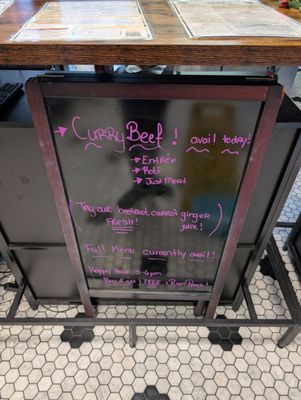 → Curry Beef! avail today!
→ Entrée
→ Roti
→ Just Meat
(Try our beetroot carrot ginger
FRESH! juice!)
Full Menu currently avail!
Happy Hour 3-6pm
Buy 1 get 1 FREE (Rum Punch)